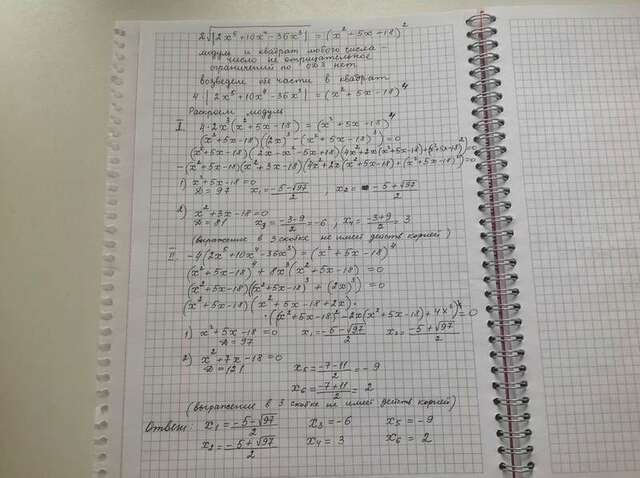 2√|2x⁵+10x⁴-36x³| = (x²+5x-18)²
модуль и квадрат любого числа -
число не отрицательное
ограничений по ОДЗ нет
возведем обе части в квадрат
4·|2x⁵+10x⁴-36x³| = (x²+5x-18)⁴
Раскроем модуль
I. 4·2x³(x²+5x-18) = (x²+5x-18)⁴
(x²+5x-18)((2x)³-(x²+5x-18)³)=0
(x²+5x-18)(2x-x²-5x+18)(4x²+2x(x²+5x-18)+(x²+5x-18)²)=0
-(x²+5x-18)(x²+3x-18)(4x²+2x(x²+5x-18)+(x²+5x-18)²)=0
1) x²+5x-18=0
D=97 x₁=(-5-√97)/2, x₂=(-5+√97)/2
2) x²+3x-18=0
D=81 x₃=(-3-9)/2=-6, x₄=(-3+9)/2=3
(выражение в 3 скобке не имеет действ корней)
II. -4(2x⁵+10x⁴-36x³)=(x²+5x-18)⁴
(x²+5x-18)⁴+8x³(x²+5x-18)=0
(x²+5x-18)((x²+5x-18)³+(2x)³)=0
(x²+5x-18)(x²+5x-18+2x)·
·((x²+5x-18)²-2x(x²+5x-18)+4x²)=0
1) x²+5x-18=0 x₁=(-5-√97)/2 x₂=(-5+√97)/2
D=97
2) x²+7x-18=0
D=121 x₅=(-7-11)/2=-9
x₆=(-7+11)/2=2
(выражение в 3 скобке не имеет действ корней)
Ответ: x₁=(-5-√97)/2 x₃=-6 x₅=-9
x₂=(-5+√97)/2 x₄=3 x₆=2